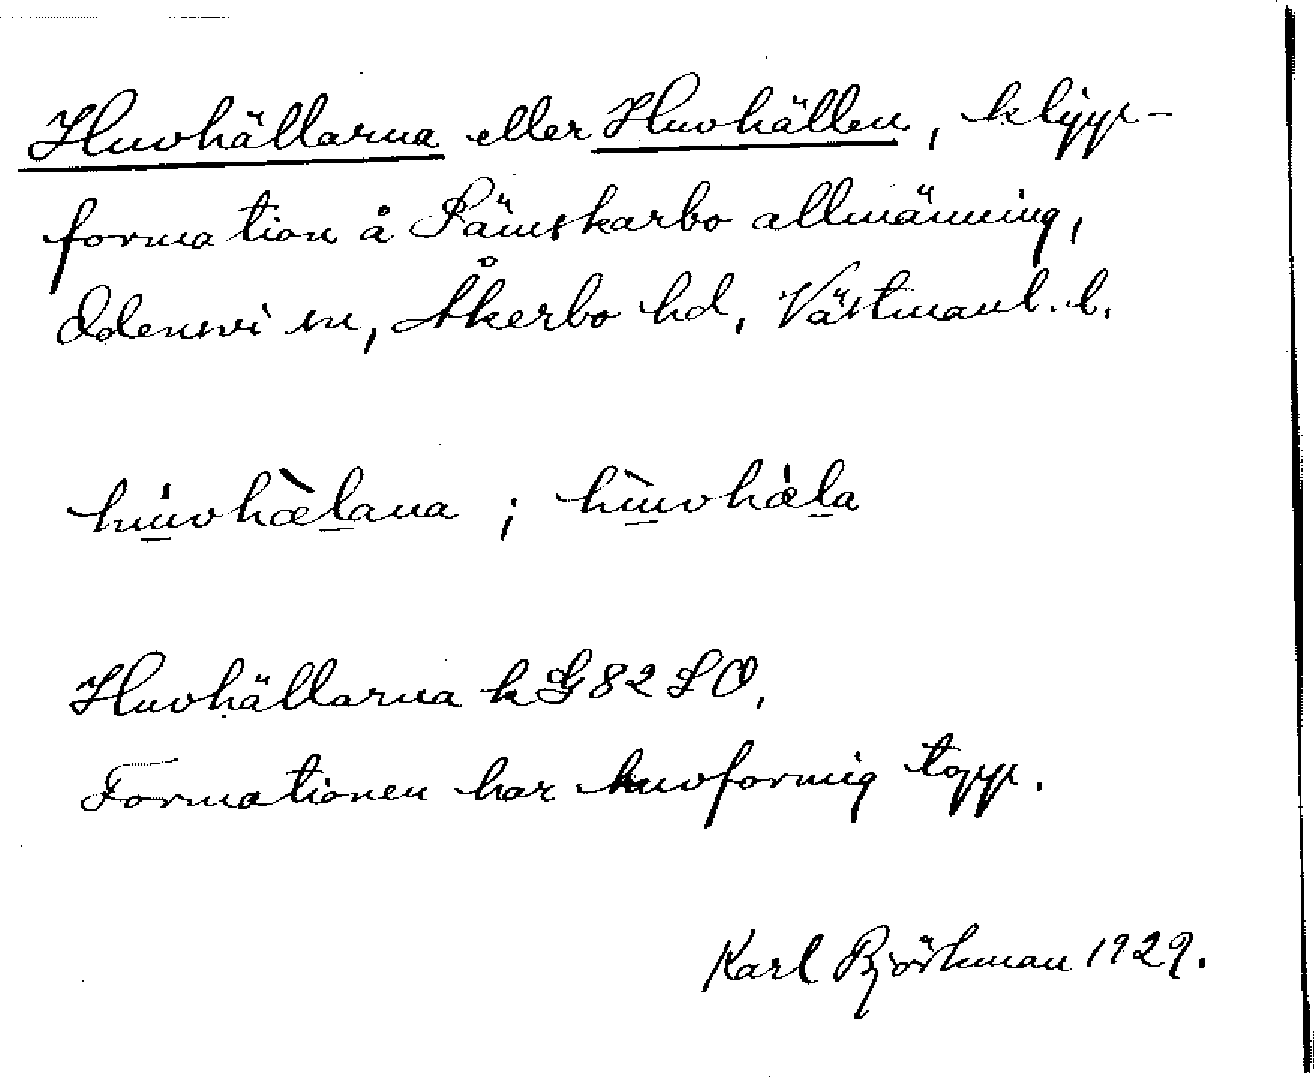 Huvhällarna eller Huvhällen, klipp-
formation å Sämskarbo allmänning,
Odensvi sn, Åkerbo hd, Västmanl. l.
huvhælana ; huvhæla
Huvhällarna k G 82 SO.
Formationen har huvformig topp.
Karl Björkman 1929.